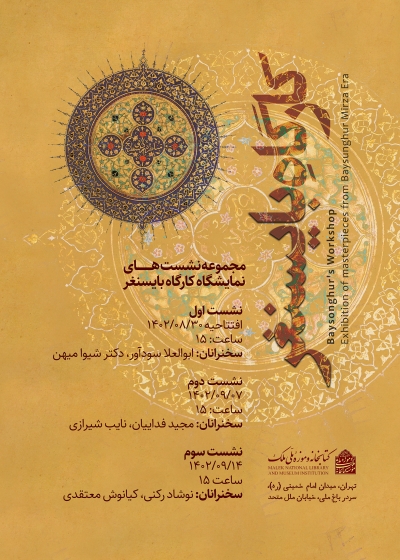 کارگاه بایسنغر
Baysonghur's Workshop
Exhibition of masterpieces from Baysunghur Mirza Era
مجموعه نشست‌هـــای
نمایشگاه کارگاه بایسنغر
نشست اول
افتتاحیه ۱۴۰۲/۰۸/۳۰
ساعت: ۱۵
سخنرانان: ابوالعلا سودآور، دکتر شیوا میهن
نشست دوم
۱۴۰۲/۰۹/۰۷
ساعت: ۱۵
سخنرانان: مجید فداییان، نایب شیرازی
نشست سوم
۱۴۰۲/۰۹/۱۴
ساعت ۱۵
سخنرانان: نوشاد رکنی، کیانوش معتقدی
کتابخانه و موزه ملی ملک
MALEK NATIONAL LIBRARY
AND MUSEUM INSTITUTION
تهران، میدان امام خمینی (ره)،
سردر باغ ملی، خیابان ملل متحد